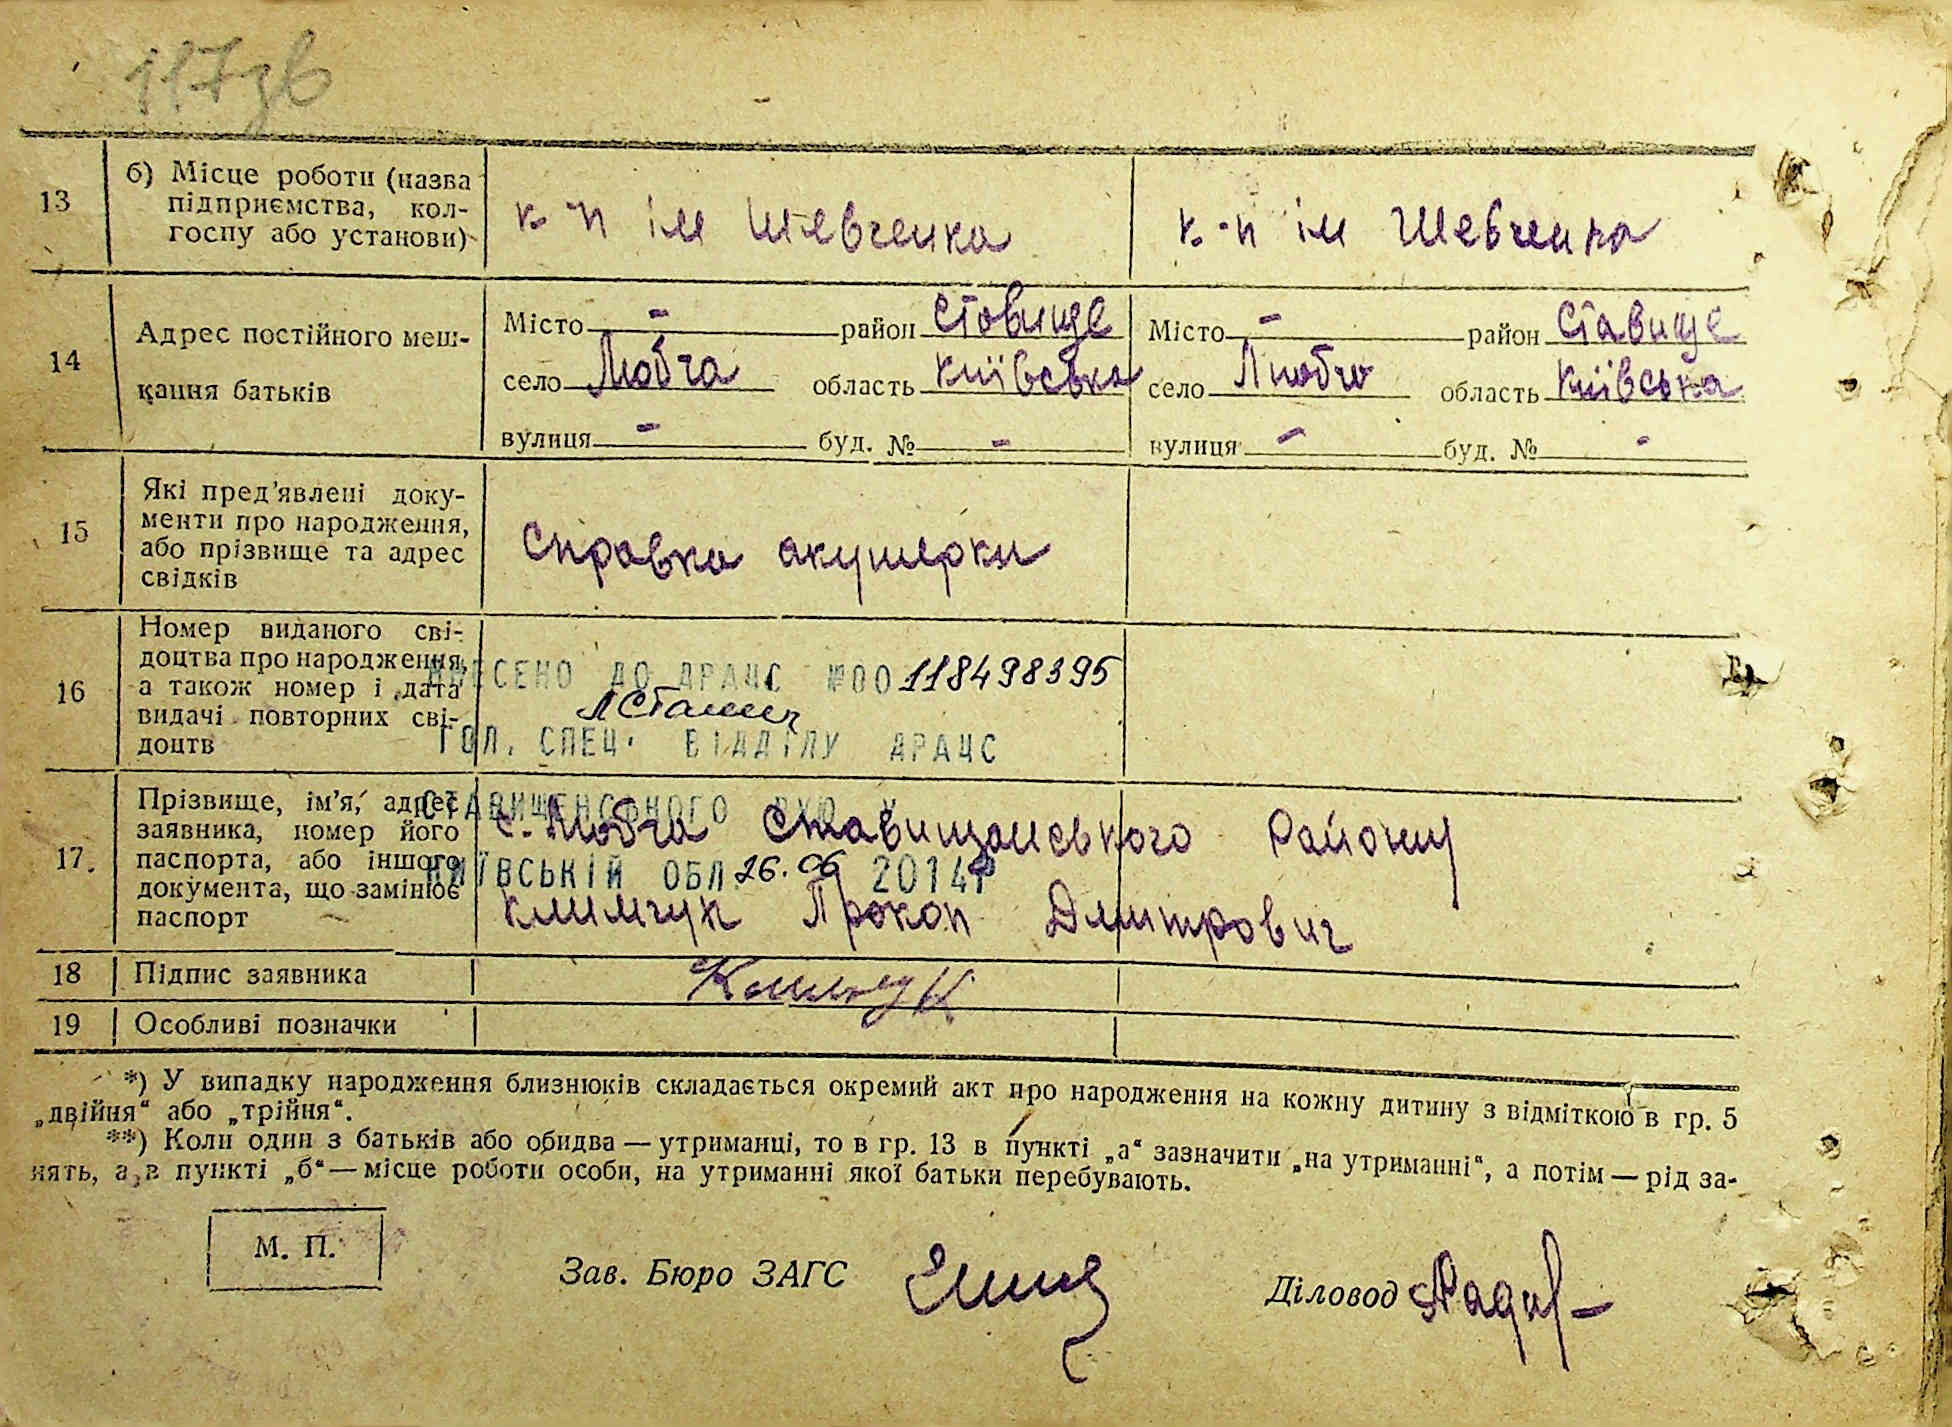 117зв
13
б) Місце роботи (назва
підприємства, кол-
госпу або установи)
к-п ім Шевченка
к-п ім Шевченка
14
Адрес постійного меш-
кання батьків
Місто - район Ставище
село Любча область Київська
вулиця - буд. № -
Місто - район Ставище
село Любча область Київська
вулиця - буд. № -
15
Які пред'явлені доку-
менти про народження,
або прізвище та адрес
свідків
Справка акушерки
16
Номер виданого сві-
доцтва про народження,
а також номер і дата
видачі повторних сві-
доцтв
ВНЕСЕНО ДО ДРАЦС №00118498395
ГОЛ. СПЕЦ. ВІДДІЛУ ДРАЦС
СТАВИЩЕНСЬКОГО РУЮ У
КИЇВСЬКІЙ ОБЛ. 26.06 2014р
17.
Прізвище, ім'я, адрес
заявника, номер його
паспорта, або іншого
документа, що замінює
паспорт
с. Любча Ставищанського району
Климчук Прокоп Дмитрович
18
Підпис заявника
Климчук
19
Особливі позначки
*) У випадку народження близнюків складається окремий акт про народження на кожну дитину з відміткою в гр. 5
„двійня“ або „трійня“.
**) Коли один з батьків або обидва — утриманці, то в гр. 13 в пункті „а“ зазначити „на утриманні“, а потім — рід за-
нять, а в пункті „б“ — місце роботи особи, на утриманні якої батьки перебувають.
М. П.
Зав. Бюро ЗАГС
Діловод